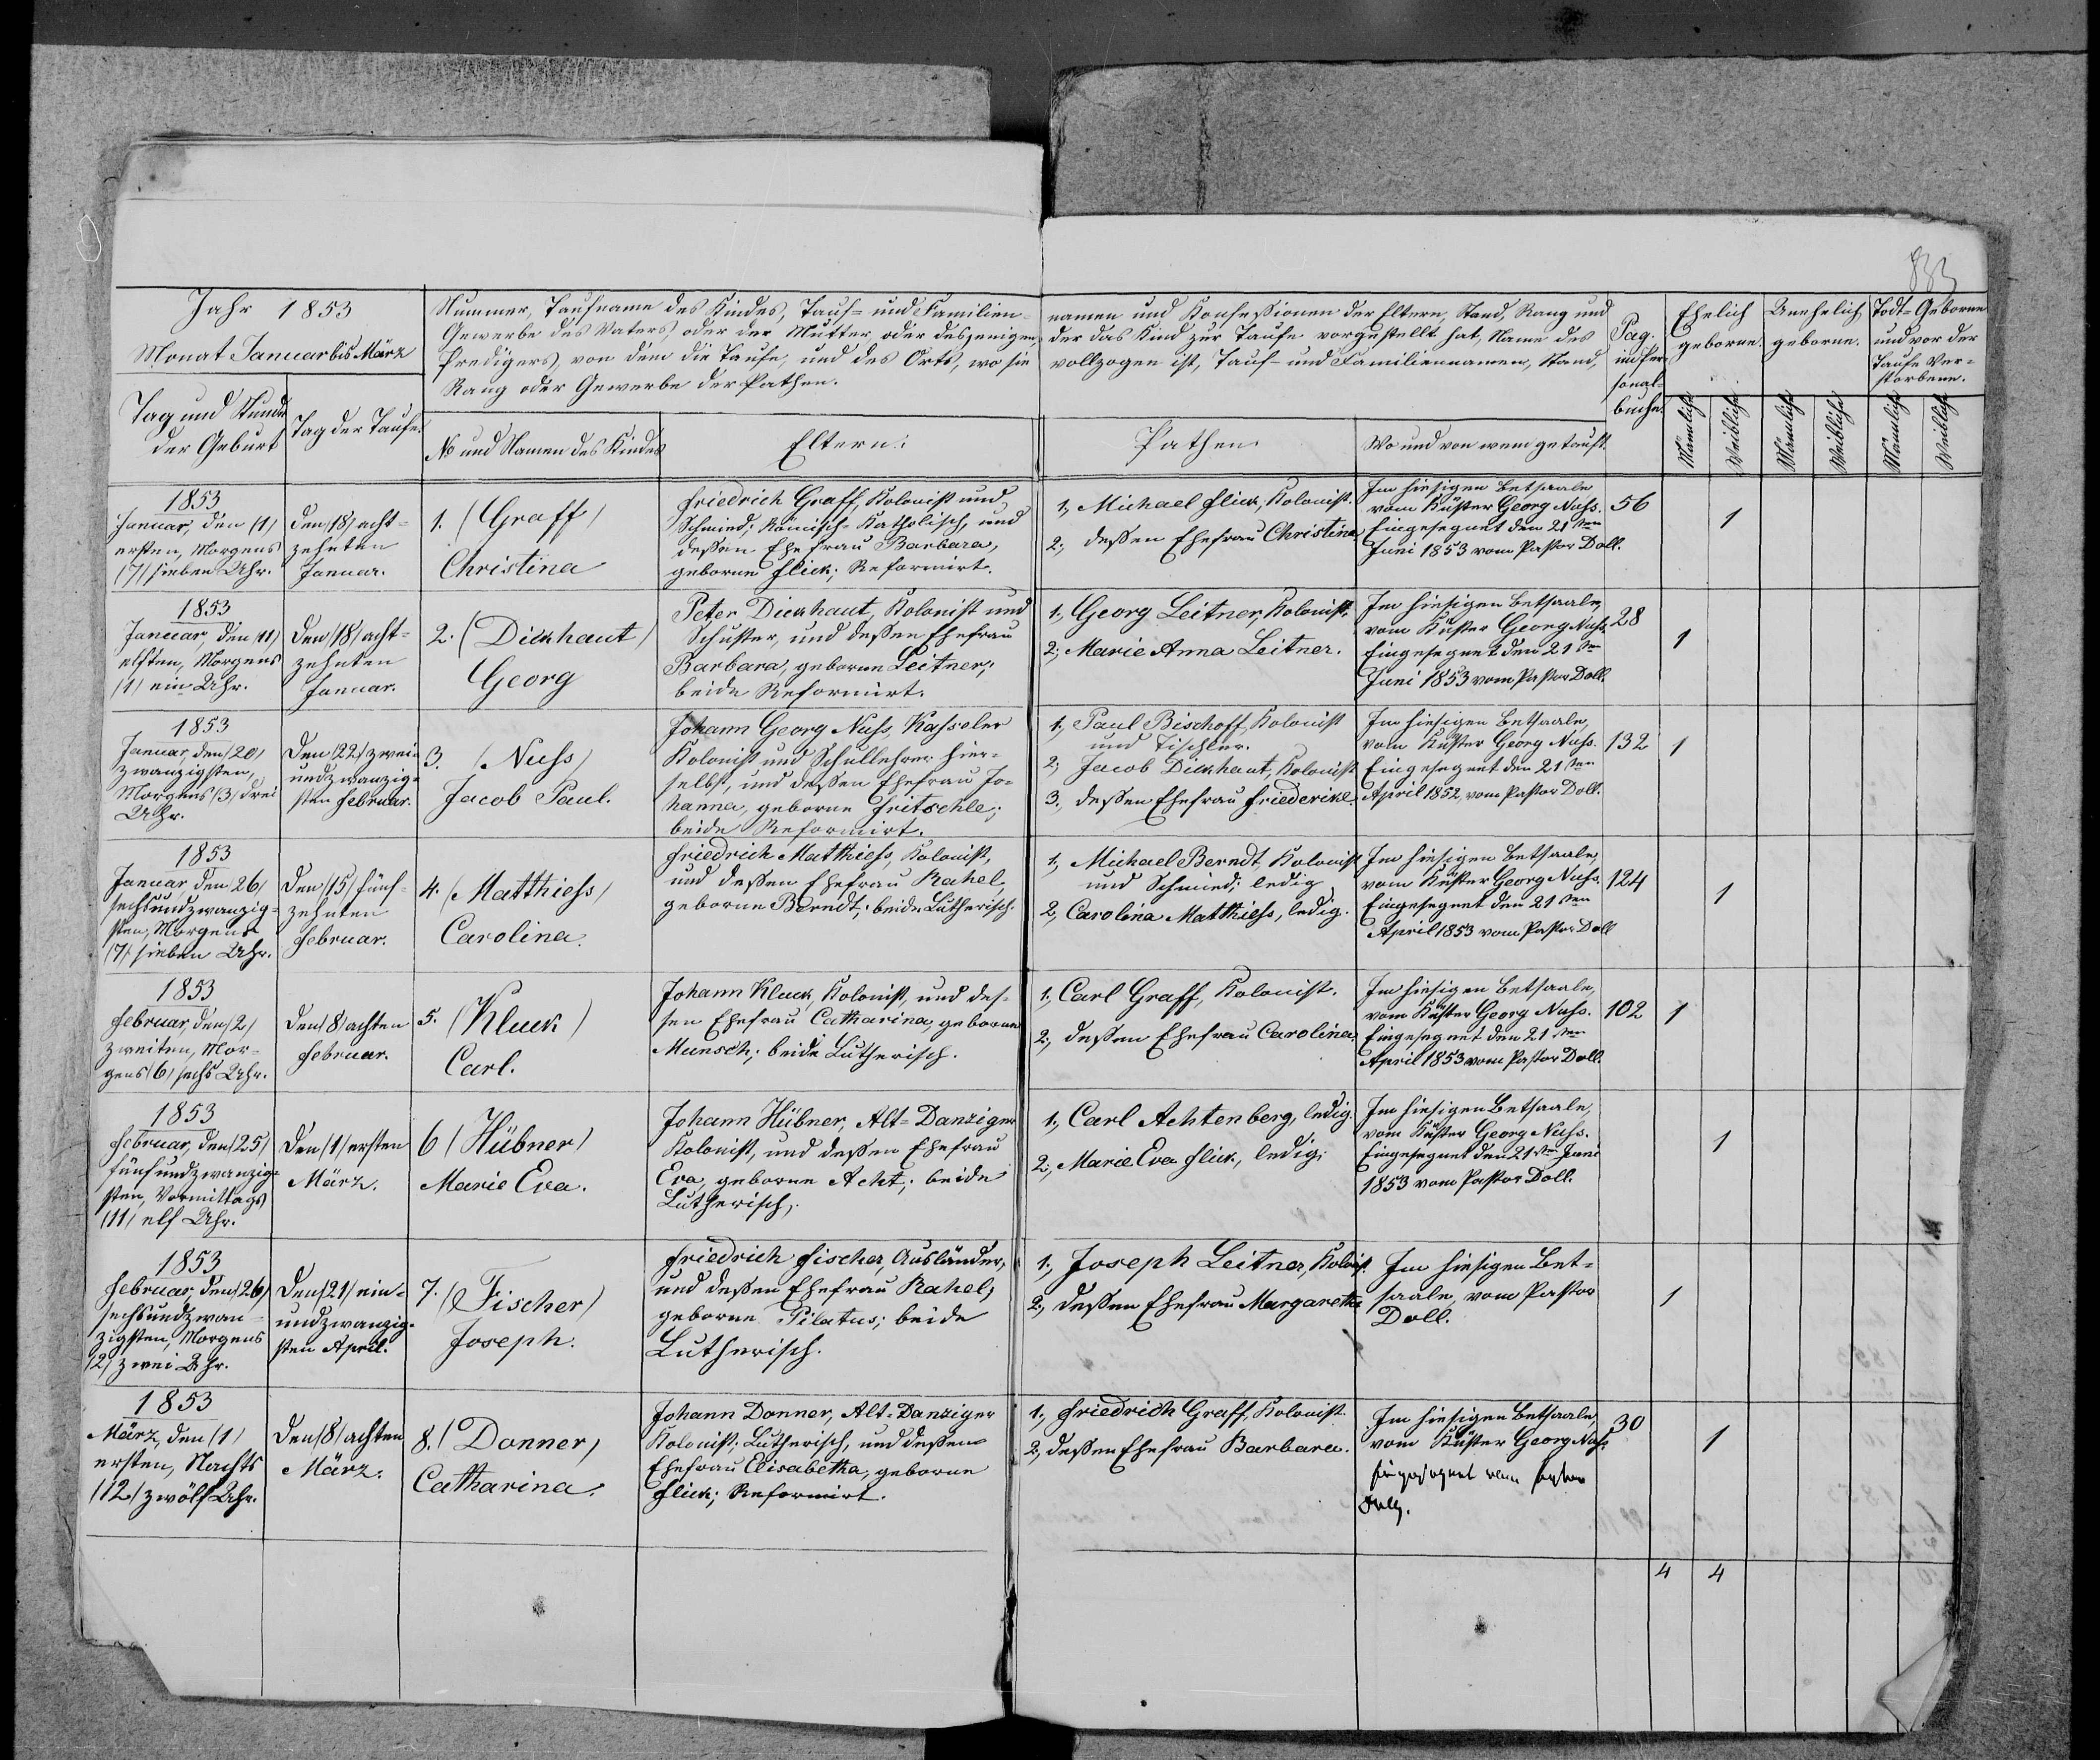 833
Jahr 1853
Monat Januar bis März
Tag und Stunde
der Geburt
Tag der Taufe.
Nummer, Taufname des Kindes, Tauf- und Familien-
Gewerbe des Vaters, oder der Mutter, oder desjenigen,
Predigers, von dem die Taufe, und des Orts, wo sie
Rang oder Gewerbe der Pathen.
No und Namen des Kindes
Eltern:
namen und Konfessionen der Eltern, Stand, Rang und
der das Kind zur Taufe vorgestellt hat, Name des
vollzogen ist, Tauf- und Familiennamen, Stand,
Pathen
Wo und von wem getauft.
Pag.
im Per-
sonal-
buche.
Ehelich
geborne.
Unehelich
geborne.
Todt-Geborne
und vor der
Taufe Ver-
storbene.
Männlich
Weiblich
Männlich
Weiblich
Männlich
Weiblich
1853
Januar, den (1)
ersten, Morgens
(7) sieben Uhr.
Den (18) acht-
zehnten
Januar.
1. (Graff)
Christina
Friedrich Graff, Kolonist und
Schmied; Römisch-Katholisch, und
dessen Ehefrau Barbara,
geborne Flick; Reformirt.
1., Michael Flick, Kolonist.
2., dessen Ehefrau Christina
Im hiesigen Betsaale
vom Küster Georg Nuss.
Eingesegnet den 21sten
Juni 1853 vom Pastor Doll.
56
1
1853
Januar, den (11)
elften, Morgens
(1) ein Uhr.
Den (18) acht-
zehnten
Januar.
2. (Dickhaut)
Georg
Peter Dickhaut, Kolonist und
Schuster, und dessen Ehefrau
Barbara, geborne Leitner;
beide Reformirt.
1., Georg Leitner, Kolonist.
2., Marie Anna Leitner.
Im hiesigen Betsaale,
vom Küster Georg Nuss.
Eingesegnet den 21sten
Juni 1853 vom Pastor Doll.
28
1
1853
Januar, den (20)
zwanzigsten,
Morgens (3) drei
Uhr.
Den (22) zwei-
undzwanzig-
sten Februar.
3. (Nuss)
Jacob Paul.
Johann Georg Nuss, Kasseler
Kolonist und Schullehrer hier-
selbst, und dessen Ehefrau Jo-
hanna, geborne Fritschle;
beide Reformirt.
1., Paul Bischoff, Kolonist
und Tischler.
2., Jacob Dickhaut, Kolonist
3., dessen Ehefrau Friederike
Im hiesigen Betsaale,
vom Küster Georg Nuss.
Eingesegnet den 21sten
April 1852, vom Pastor Doll.
132
1
1853
Januar, den (26)
sechsundzwanzig-
sten, Morgens
(7) sieben Uhr.
Den (15) fünf-
zehnten
Februar.
4. (Matthiess)
Carolina.
Friedrich Matthiess, Kolonist,
und dessen Ehefrau Rahel,
geborne Berndt; beide Lutherisch.
1., Michael Berndt, Kolonist
und Schmied; ledig
2., Carolina Matthiess, ledig.
Im hiesigen Betsaale,
vom Küster Georg Nuss.
Eingesegnet den 21sten
April 1853 vom Pastor Doll
124
1
1853
Februar, den (2)
zweiten, Mor-
gens (6) sechs Uhr.
Den (8) achten
Februar.
5. (Kluck)
Carl.
Johann Kluck, Kolonist, und des-
sen Ehefrau Catharina, geborne
Munsch; beide Lutherisch.
1., Carl Graff, Kolonist.
2., dessen Ehefrau Carolina.
Im hiesigen Betsaale,
vom Küster Georg Nuss.
Eingesegnet den 21sten
April 1853 vom Pastor Doll.
102
1
1853
Februar, den (25)
fünfundzwanzig-
sten, Vormittags
(11) elf Uhr.
Den (1) ersten
März.
6 (Hübner)
Marie Eva.
Johann Hübner, Alt-Danziger
Kolonist, und dessen Ehefrau
Eva, geborne Acht; beide
Lutherisch.
1., Carl Achtenberg, ledig.
2., Marie Eva Flick, ledig.
Im hiesigen Betsaale,
vom Küster Georg Nuss.
Eingesegnet den 21sten Juni
1853 vom Pastor Doll.
1
1853
Februar, den (26)
sechsundzwan-
zigsten, Morgens
(2) zwei Uhr.
Den (21) ein-
undzwanzig-
sten April.
7. (Fischer)
Joseph.
Friedrich Fischer, Ausländer,
und dessen Ehefrau Rahel,
geborne Pilatus; beide
Lutherisch.
1., Joseph Leitner, Kolonist.
2., dessen Ehefrau Margaretha
Im hiesigen Bet-
saale, vom Pastor
Doll.
1
1853
März, den (1)
ersten, Nachts
(12) zwölf Uhr.
Den (8) achten
März.
8. (Donner)
Catharina.
Johann Donner, Alt-Danziger
Kolonist; Lutherisch, und dessen
Ehefrau Elisabetha, geborne
Flick; Reformirt.
1., Friedrich Graff, Kolonist.
2., dessen Ehefrau Barbara.
Im hiesigen Betsaale,
vom Küster Georg Nuss
Eingesegnet vom Pastor
Doll.
30
1
4 4